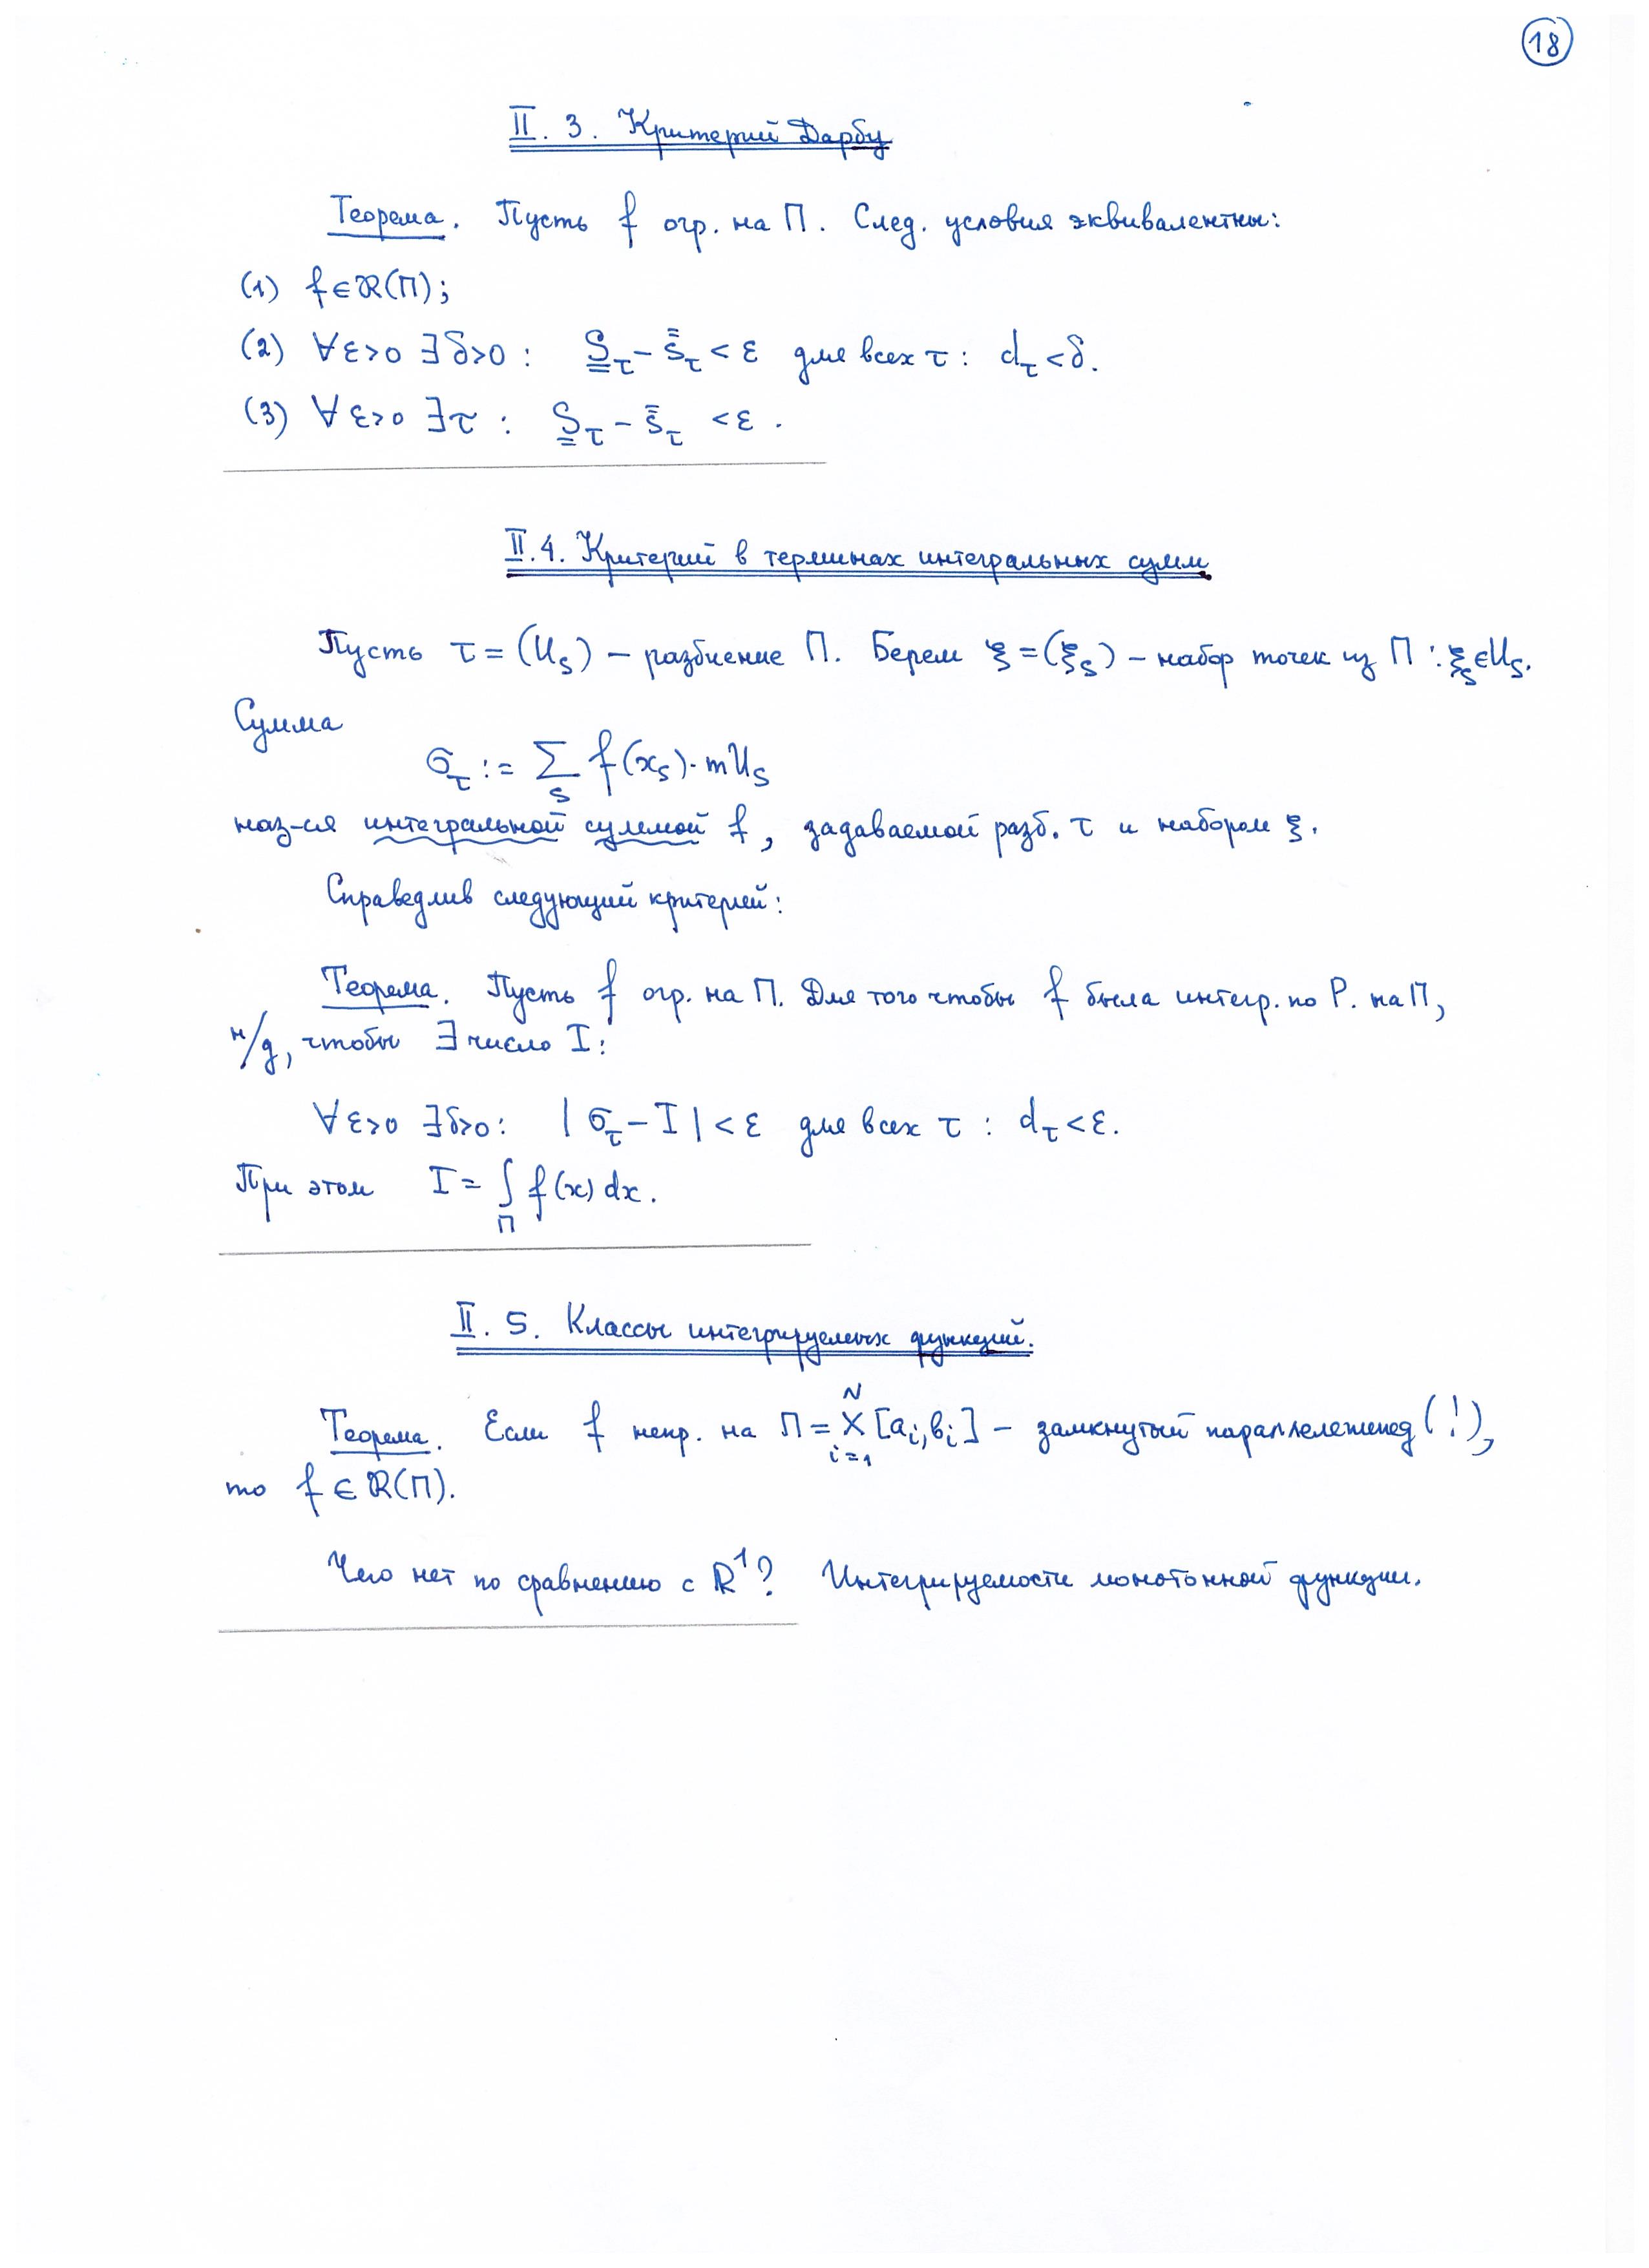 18
II. 3. Критерий Дарбу
Теорема. Пусть f огр. на П. След. условия эквивалентны:
(1) f ∈ ℛ(П);
(2) ∀ε>0 ∃δ>0 : S_τ − s_τ < ε для всех τ : d_τ < δ.
(3) ∀ε>0 ∃τ : S_τ − s_τ < ε.
II.4. Критерий в терминах интегральных сумм
Пусть τ = (U_s) – разбиение П. Берем ξ = (ξ_s) – набор точек из П : ξ_s ∈ U_s.
Сумма
σ_τ := ∑_s f(x_s)·mU_s
наз-ся интегральной суммой f, задаваемой разб. τ и набором ξ.
Справедлив следующий критерий:
Теорема. Пусть f огр. на П. Для того чтобы f была интегр. по Р. на П,
н/д, чтобы ∃ число I:
∀ε>0 ∃δ>0: |σ_τ − I| < ε для всех τ : d_τ < ε.
При этом I = ∫_П f(x) dx.
II. 5. Классы интегрируемых функций.
Теорема. Если f непр. на П = X_{i=1}^N [a_i, b_i] – замкнутый параллелепипед (!),
то f ∈ ℛ(П).
Чего нет по сравнению с ℝ¹? Интегрируемости монотонной функции.